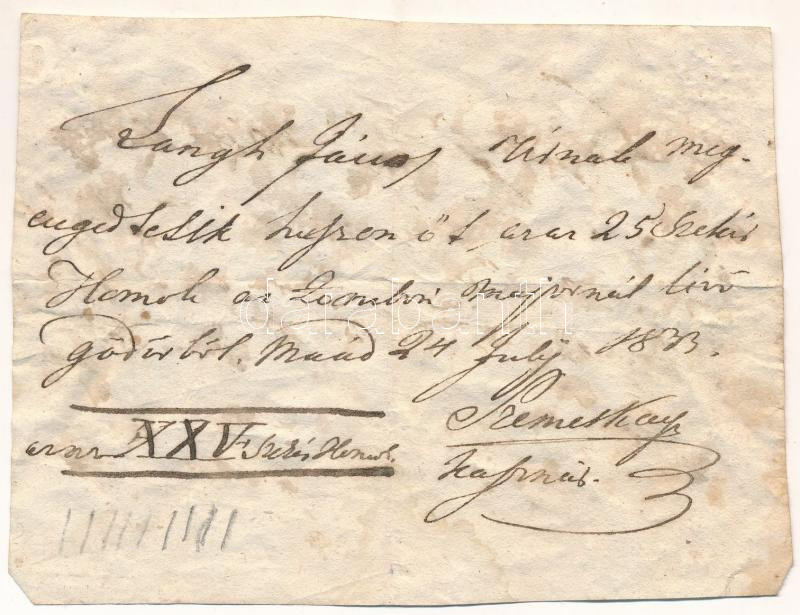 Langh János Úrnak meg-
engedtetik huszon öt azaz 25 Szekér
Homok az Zombori majornál lévő
gödörből. Maád 24 July 1873.
azaz XXV Szekér Homok.
Szemeskay
Kasznár.
darabanth